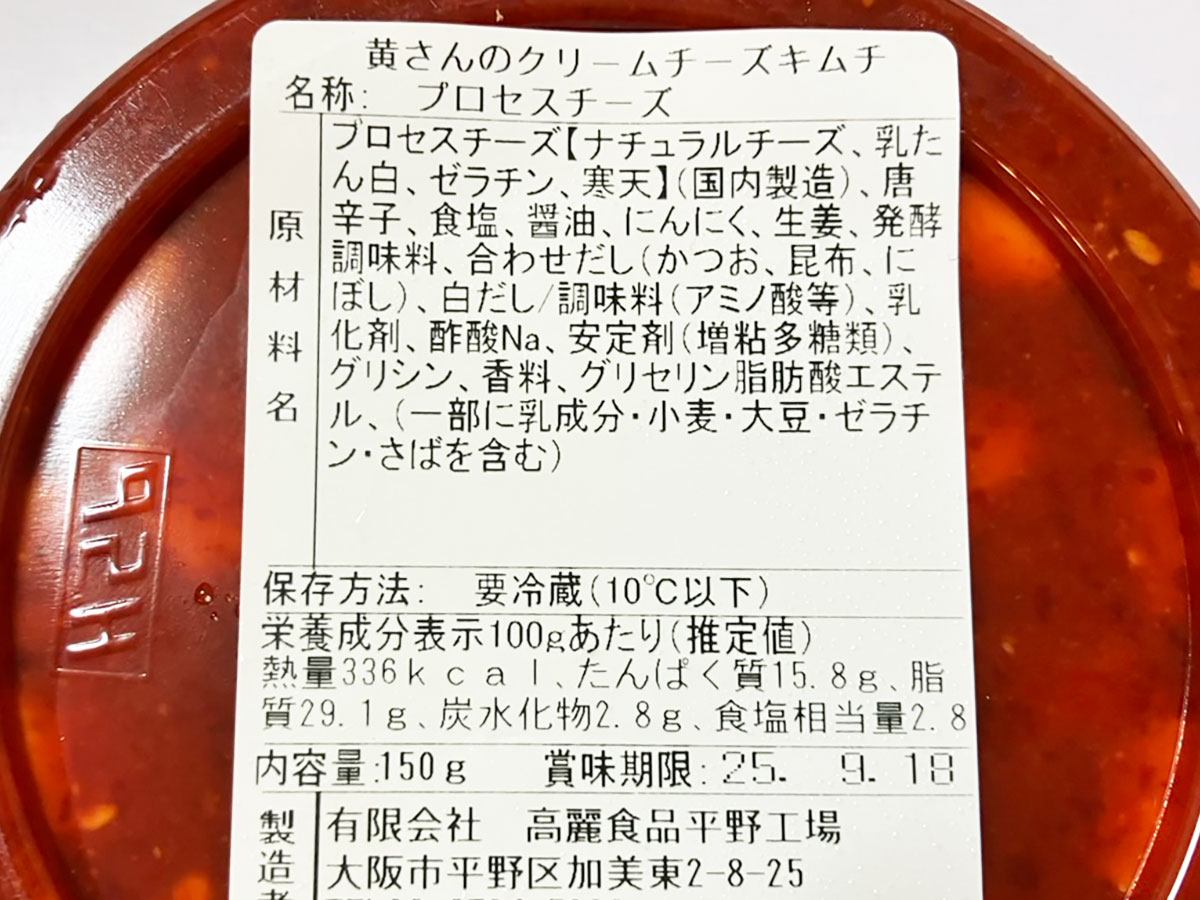 黄さんのクリームチーズキムチ
名称: プロセスチーズ
原材料名
プロセスチーズ【ナチュラルチーズ、乳た
ん白、ゼラチン、寒天】(国内製造)、唐
辛子、食塩、醤油、にんにく、生姜、発酵
調味料、合わせだし(かつお、昆布、に
ぼし)、白だし/調味料(アミノ酸等)、乳
化剤、酢酸Na、安定剤(増粘多糖類)、
グリシン、香料、グリセリン脂肪酸エステ
ル、(一部に乳成分・小麦・大豆・ゼラチ
ン・さばを含む)
保存方法: 要冷蔵(10℃以下)
栄養成分表示100gあたり(推定値)
熱量336kcal、たんぱく質15.8g、脂
質29.1g、炭水化物2.8g、食塩相当量2.8
内容量:150g 賞味期限:25. 9.18
製造者
有限会社 高麗食品平野工場
大阪市平野区加美東2-8-25